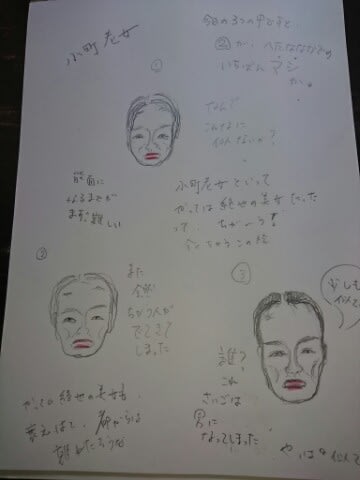 小町老女
今回の3つの中ですと
②が、へたななかでも
いちばんマシ
か。
①
なんで
こんなに
似ないか?
能面に
なるまでが
まず難しい
小町老女といって
かつては絶世の美女だった
って、ちがーう!
②
また
全然
ちがう人が
でてきて
しまった
③
少しも
似て
誰?
これ
さいごは
男に
なってしまった
かつての絶世の美女も
衰えはて、都からは
離れたろうな